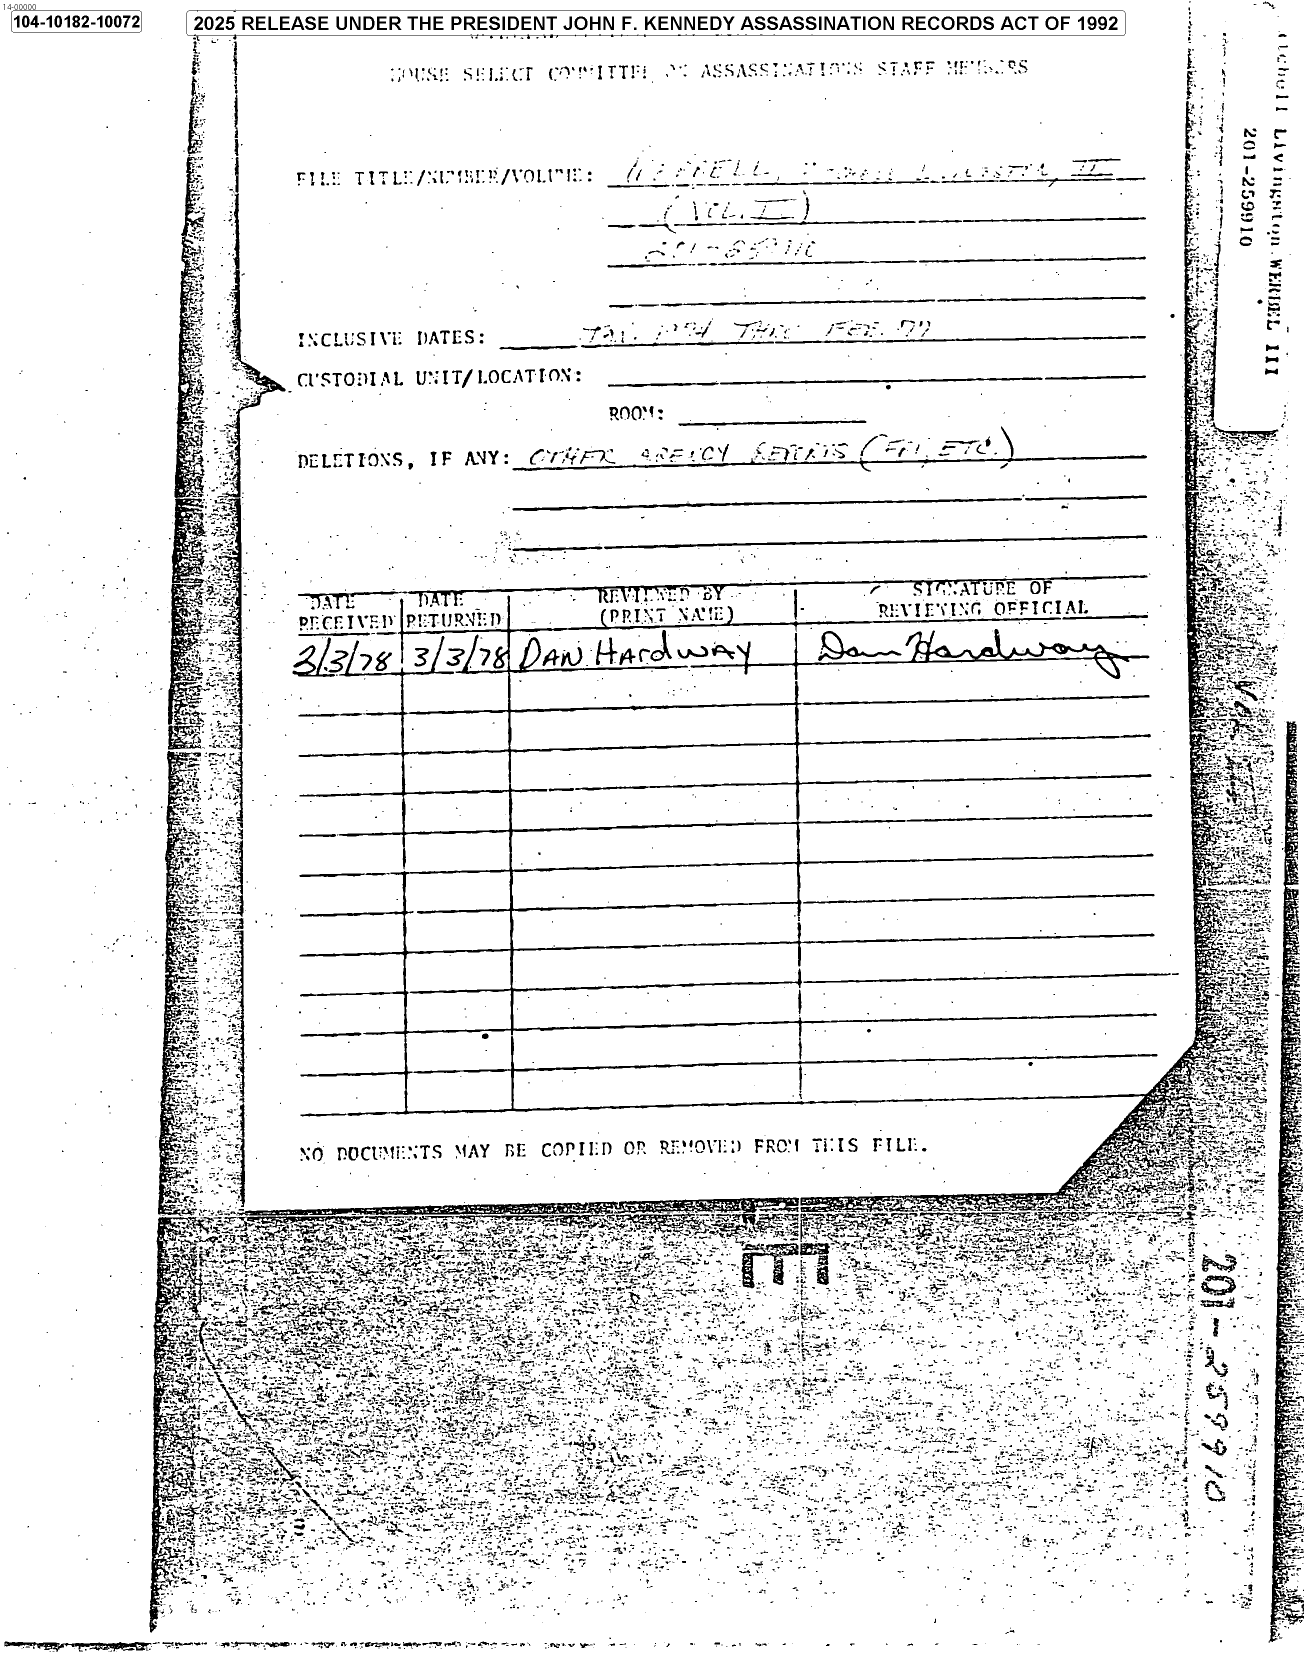 14-00000
104-10182-10072
2025 RELEASE UNDER THE PRESIDENT JOHN F. KENNEDY ASSASSINATION RECORDS ACT OF 1992
HOUSE SELECT COMMITTEE ON ASSASSINATIONS STAFF MEMBERS
FILE TITLE/NUMBER/VOLUME:
(VOL. I)
INCLUSIVE DATES: THRU FEB. 77
CUSTODIAL UNIT/LOCATION:
ROOM:
DELETIONS, IF ANY: OTHER AGENCY REPORTS (FBI, ETC.)
DATE RECEIVED DATE RETURNED REVIEWED BY (PRINT NAME) SIGNATURE OF REVIEWING OFFICIAL
3/3/78 3/3/78 DAN HArdwAY Dan Hardway
NO DOCUMENTS MAY BE COPIED OR REMOVED FROM THIS FILE.
Livingston WERBEL III
201-259910
201-259910